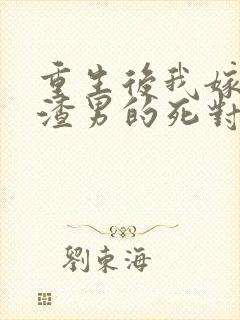 重生後我嫁
渣男的死對
劉東海